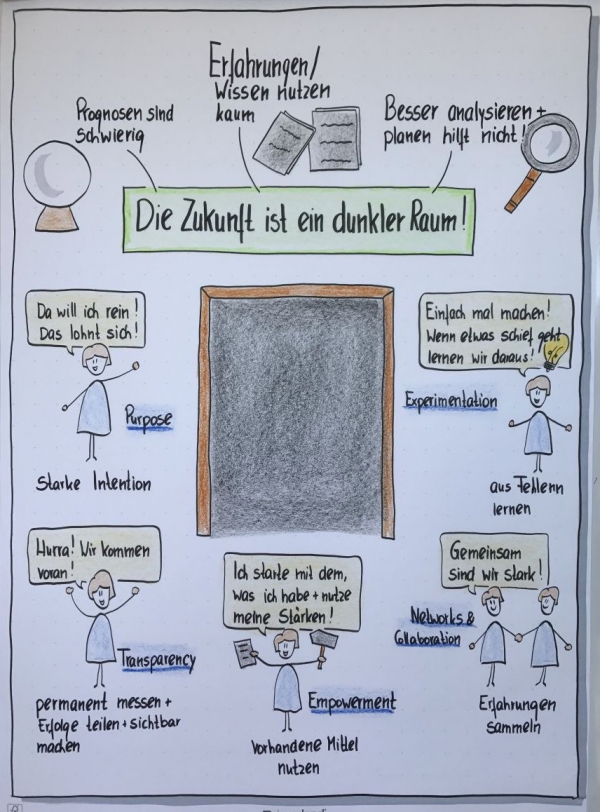 Erfahrungen/
Wissen nutzen
kaum
Prognosen sind
schwierig
Besser analysieren +
planen hilft nicht!
Die Zukunft ist ein dunkler Raum!
Da will ich rein!
Das lohnt sich!
Purpose
Starke Intention
Einfach mal machen!
Wenn etwas schief geht
lernen wir daraus!
Experimentation
aus Fehlern
lernen
Hurra! Wir kommen
voran!
Transparency
permanent messen +
Erfolge teilen + sichtbar
machen
Ich starte mit dem,
was ich habe + nutze
meine Stärken!
Empowerment
Vorhandene Mittel
nutzen
Gemeinsam
sind wir stark!
Networks &
Collaboration
Erfahrungen
sammeln